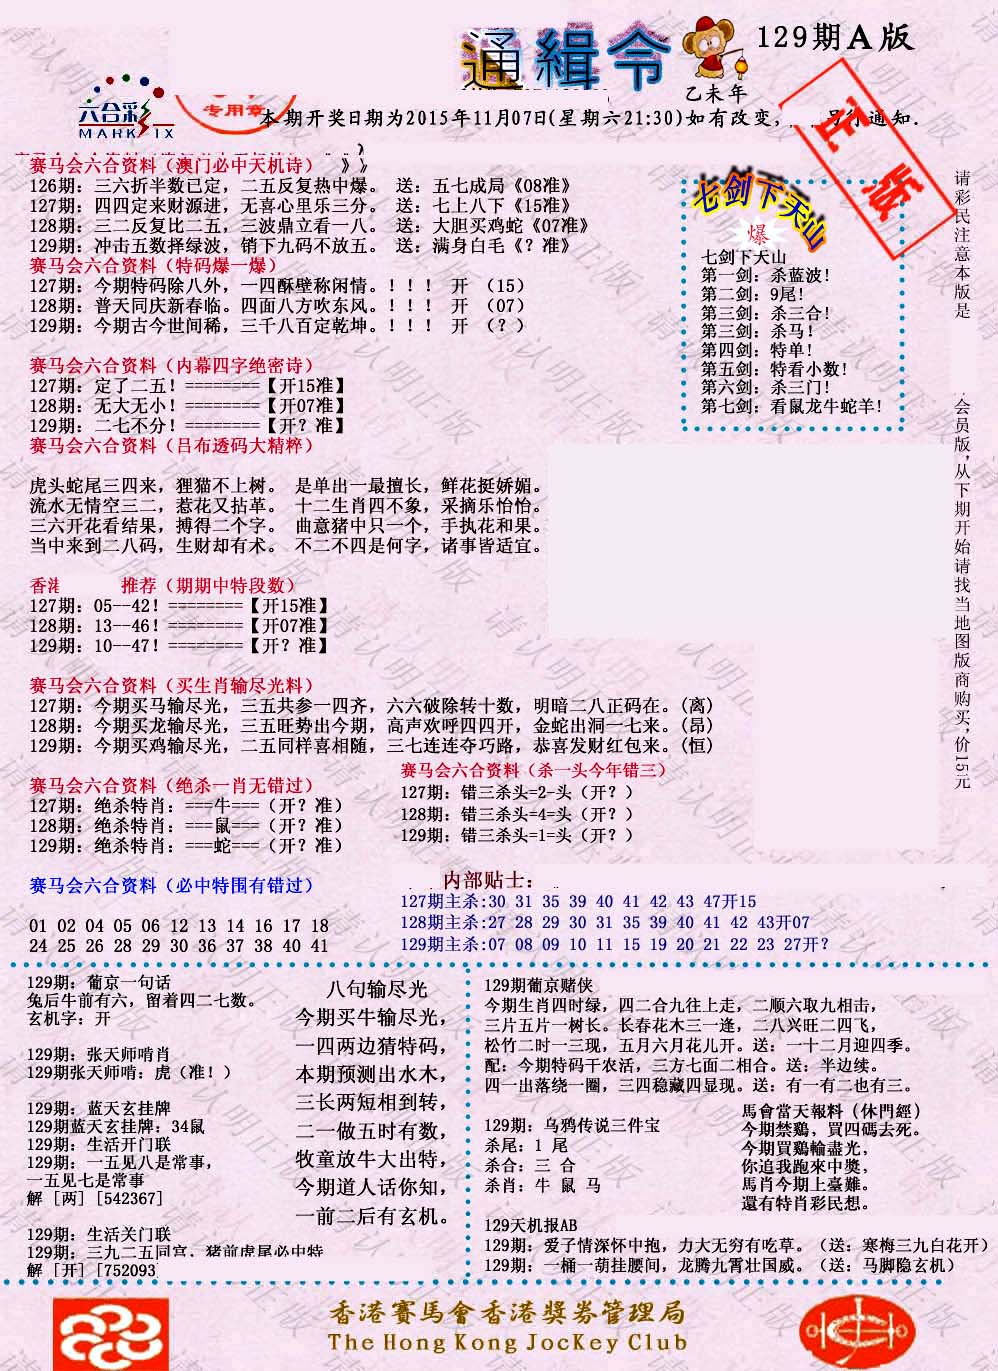 通緝令
129期A版
乙未年
六合彩
MARK SIX
专用章
本期开奖日期为2015年11月07日(星期六21:30)如有改变,
通知.
赛马会六合资料（澳门必中天机诗） 》》
126期: 三六折半数已定, 二五反复热中爆。 送: 五七成局《08准》
127期: 四四定来财源进, 无喜心里乐三分。 送: 七上八下《15准》
128期: 三二反复比二五, 三波鼎立看一八。 送: 大胆买鸡蛇《07准》
129期: 冲击五数择绿波, 销下九码不放五。 送: 满身白毛《? 准》
赛马会六合资料（特码爆一爆）
127期: 今期特码除八外, 一四酥壁称闲情。! ! ! 开 （15）
128期: 普天同庆新春临。四面八方吹东风。! ! ! 开 （07）
129期: 今期古今世间稀, 三千八百定乾坤。! ! ! 开 （? ）
赛马会六合资料（内幕四字绝密诗）
127期: 定了二五! ========【开15准】
128期: 无大无小! ========【开07准】
129期: 二七不分! ========【开? 准】
赛马会六合资料（吕布透码大精粹）
虎头蛇尾三四来, 狸猫不上树。 是单出一最擅长, 鲜花挺娇媚。
流水无情空三二, 惹花又拈革。 十二生肖四不象, 采摘乐怡怡。
三六开花看结果, 搏得二个字。 曲意猪中只一个, 手执花和果。
当中来到二八码, 生财却有术。 不二不四是何字, 诸事皆适宜。
七剑下天山
爆
七剑下天山
第一剑: 杀蓝波!
第二剑: 9尾!
第三剑: 杀三合!
第三剑: 杀马!
第四剑: 特单!
第五剑: 特看小数!
第六剑: 杀三门!
第七剑: 看鼠龙牛蛇羊!
请彩民注意本版是
会员版,从下期开始请找当地图版商购买,价15元
香港 推荐（期期中特段数）
127期: 05--42! ========【开15准】
128期: 13--46! ========【开07准】
129期: 10--47! ========【开? 准】
赛马会六合资料（买生肖输尽光料）
127期: 今期买马输尽光, 三五共参一四齐, 六六破除转十数, 明暗二八正码在。(离)
128期: 今期买龙输尽光, 三五旺势出今期, 高声欢呼四四开, 金蛇出洞一七来。(昂)
129期: 今期买鸡输尽光, 二五同样喜相随, 三七连连夺巧路, 恭喜发财红包来。(恒)
赛马会六合资料（绝杀一肖无错过）
127期: 绝杀特肖: ===牛===（开? 准）
128期: 绝杀特肖: ===鼠===（开? 准）
129期: 绝杀特肖: ===蛇===（开? 准）
赛马会六合资料（杀一头今年错三）
127期: 错三杀头=2-头（开? ）
128期: 错三杀头=4=头（开? ）
129期: 错三杀头=1=头（开? ）
赛马会六合资料（必中特围有错过）
01 02 04 05 06 12 13 14 16 17 18
24 25 26 28 29 30 36 37 38 40 41
内部贴士:
127期主杀:30 31 35 39 40 41 42 43 47开15
128期主杀:27 28 29 30 31 35 39 40 41 42 43开07
129期主杀:07 08 09 10 11 15 19 20 21 22 23 27开?
129期: 葡京一句话
兔后牛前有六, 留着四二七数。
玄机字: 开
129期: 张天师啃肖
129期张天师啃: 虎（准! ）
129期: 蓝天玄挂牌
129期蓝天玄挂牌: 34鼠
129期: 生活开门联
129期: 一五见八是常事,
一五见七是常事
解 [两] [542367]
129期: 生活关门联
129期: 三九二五同宫, 猪前虎尾必中特
解 [开] [752093
八句输尽光
今期买牛输尽光,
一四两边猜特码,
本期预测出水木,
三长两短相到转,
二一做五时有数,
牧童放牛大出特,
今期道人话你知,
一前二后有玄机。
129期葡京赌侠
今期生肖四时绿, 四二合九往上走, 二顺六取九相击,
三片五片一树长。长春花木三一逢, 二八兴旺二四飞,
松竹二时一三现, 五月六月花儿开。送: 一十二月迎四季。
配: 今期特码干农活, 三方七面二相合。送: 半边续。
四一出落绕一圈, 三四稳藏四显现。送: 有一有二也有三。
129期: 乌鸦传说三件宝
杀尾: 1 尾
杀合: 三 合
杀肖: 牛 鼠 马
馬會當天報料 (休門經)
今期禁鷄, 買四碼去死。
今期買鷄輸盡光,
你追我跑來中獎,
馬肖今期上臺難。
還有特肖彩民想。
129天机报AB
129期: 爱子情深怀中抱, 力大无穷有吃草。（送: 寒梅三九白花开）
129期: 一桶一葫挂腰间, 龙腾九霄壮国威。（送: 马脚隐玄机）
香港賽馬會香港獎券管理局
The Hong Kong JocKey Club